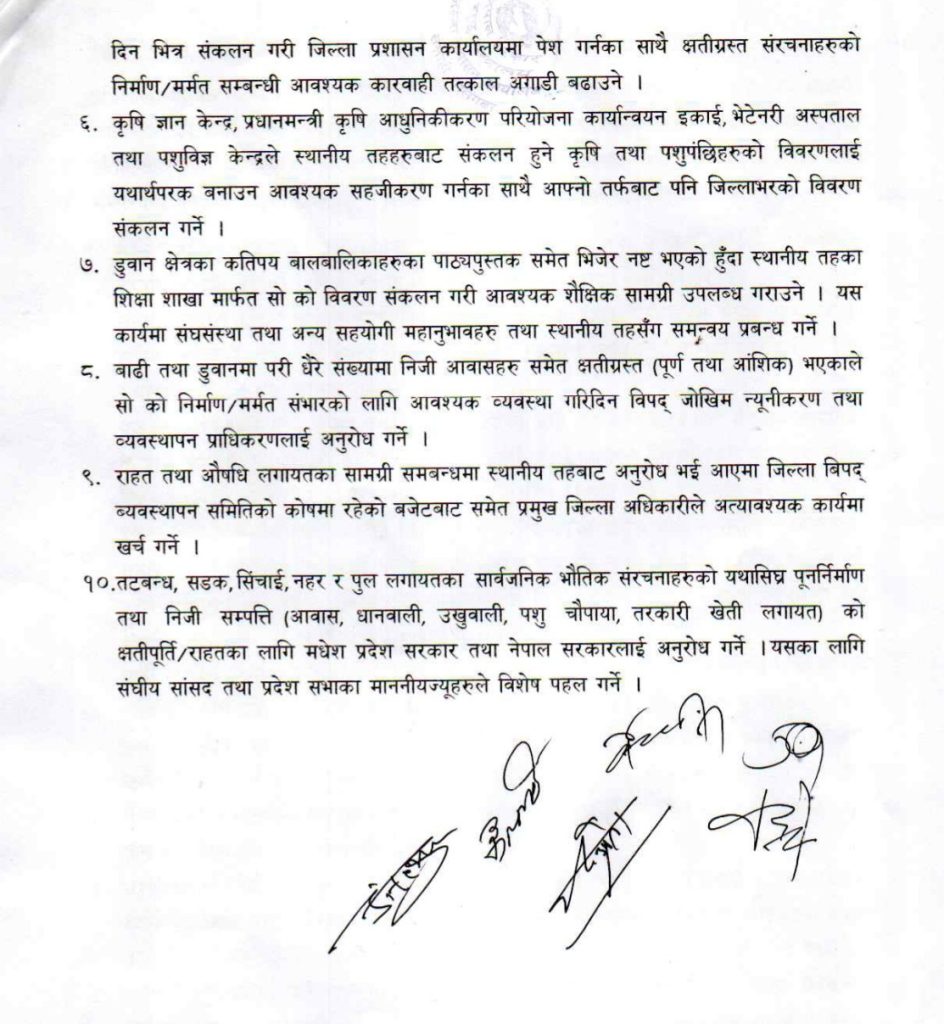 दिन भित्र संकलन गरी जिल्ला प्रशासन कार्यालयमा पेश गर्नका साथै क्षतीग्रस्त संरचनाहरुको
निर्माण/मर्मत सम्बन्धी आवश्यक कारवाही तत्काल अगाडी बढाउने ।
६. कृषि ज्ञान केन्द्र, प्रधानमन्त्री कृषि आधुनिकीकरण परियोजना कार्यान्वयन इकाई, भेटेनरी अस्पताल
तथा पशुविज्ञ केन्द्रले स्थानीय तहहरुबाट संकलन हुने कृषि तथा पशुपंछिहरुको विवरणलाई
यथार्थपरक बनाउन आवश्यक सहजीकरण गर्नका साथै आफ्नो तर्फबाट पनि जिल्लाभरको विवरण
संकलन गर्ने ।
७. डुवान क्षेत्रका कतिपय बालबालिकाहरुका पाठ्यपुस्तक समेत भिजेर नष्ट भएको हुँदा स्थानीय तहका
शिक्षा शाखा मार्फत सो को विवरण संकलन गरी आवश्यक शैक्षिक सामग्री उपलब्ध गराउने । यस
कार्यमा संघसंस्था तथा अन्य सहयोगी महानुभावहरु तथा स्थानीय तहसँग समन्वय प्रबन्ध गर्ने ।
८. बाढी तथा डुवानमा परी धेरै संख्यामा निजी आवासहरु समेत क्षतीग्रस्त (पूर्ण तथा आंशिक) भएकाले
सो को निर्माण/मर्मत संभारको लागि आवश्यक व्यवस्था गरिदिन विपद् जोखिम न्यूनीकरण तथा
व्यवस्थापन प्राधिकरणलाई अनुरोध गर्ने ।
९. राहत तथा औषधि लगायतका सामग्री समबन्धमा स्थानीय तहबाट अनुरोध भई आएमा जिल्ला बिपद्
ब्यवस्थापन समितिको कोषमा रहेको बजेटबाट समेत प्रमुख जिल्ला अधिकारीले अत्यावश्यक कार्यमा
खर्च गर्ने ।
१०.तटबन्ध, सडक, सिंचाई, नहर र पुल लगायतका सार्वजनिक भौतिक संरचनाहरुको यथासिघ्र पूनर्निर्माण
तथा निजी सम्पत्ति (आवास, धानवाली, उखुवाली, पशु चौपाया, तरकारी खेती लगायत) को
क्षतीपूर्ति/राहतका लागि मधेश प्रदेश सरकार तथा नेपाल सरकारलाई अनुरोध गर्ने । यसका लागि
संघीय सांसद तथा प्रदेश सभाका माननीयज्यूहरुले विशेष पहल गर्ने ।